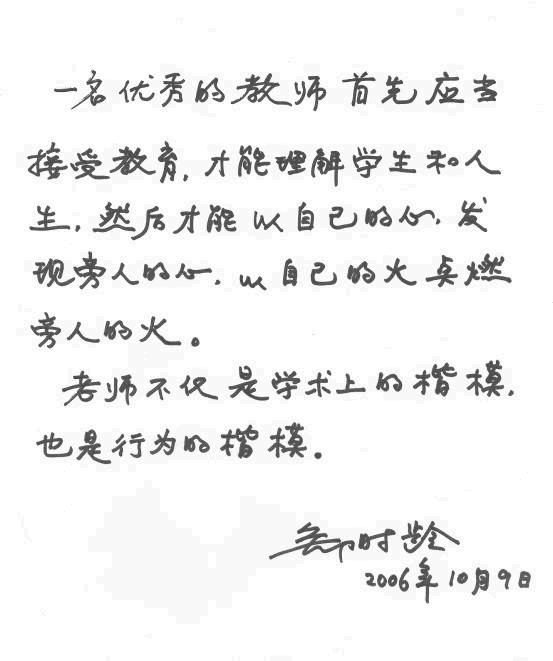 一名优秀的教师首先应当
接受教育，才能理解学生和人
生，然后才能以自己的心，发
现旁人的心，以自己的火点燃
旁人的火。
老师不仅是学术上的楷模，
也是行为的楷模。
郑时龄
2006年10月9日